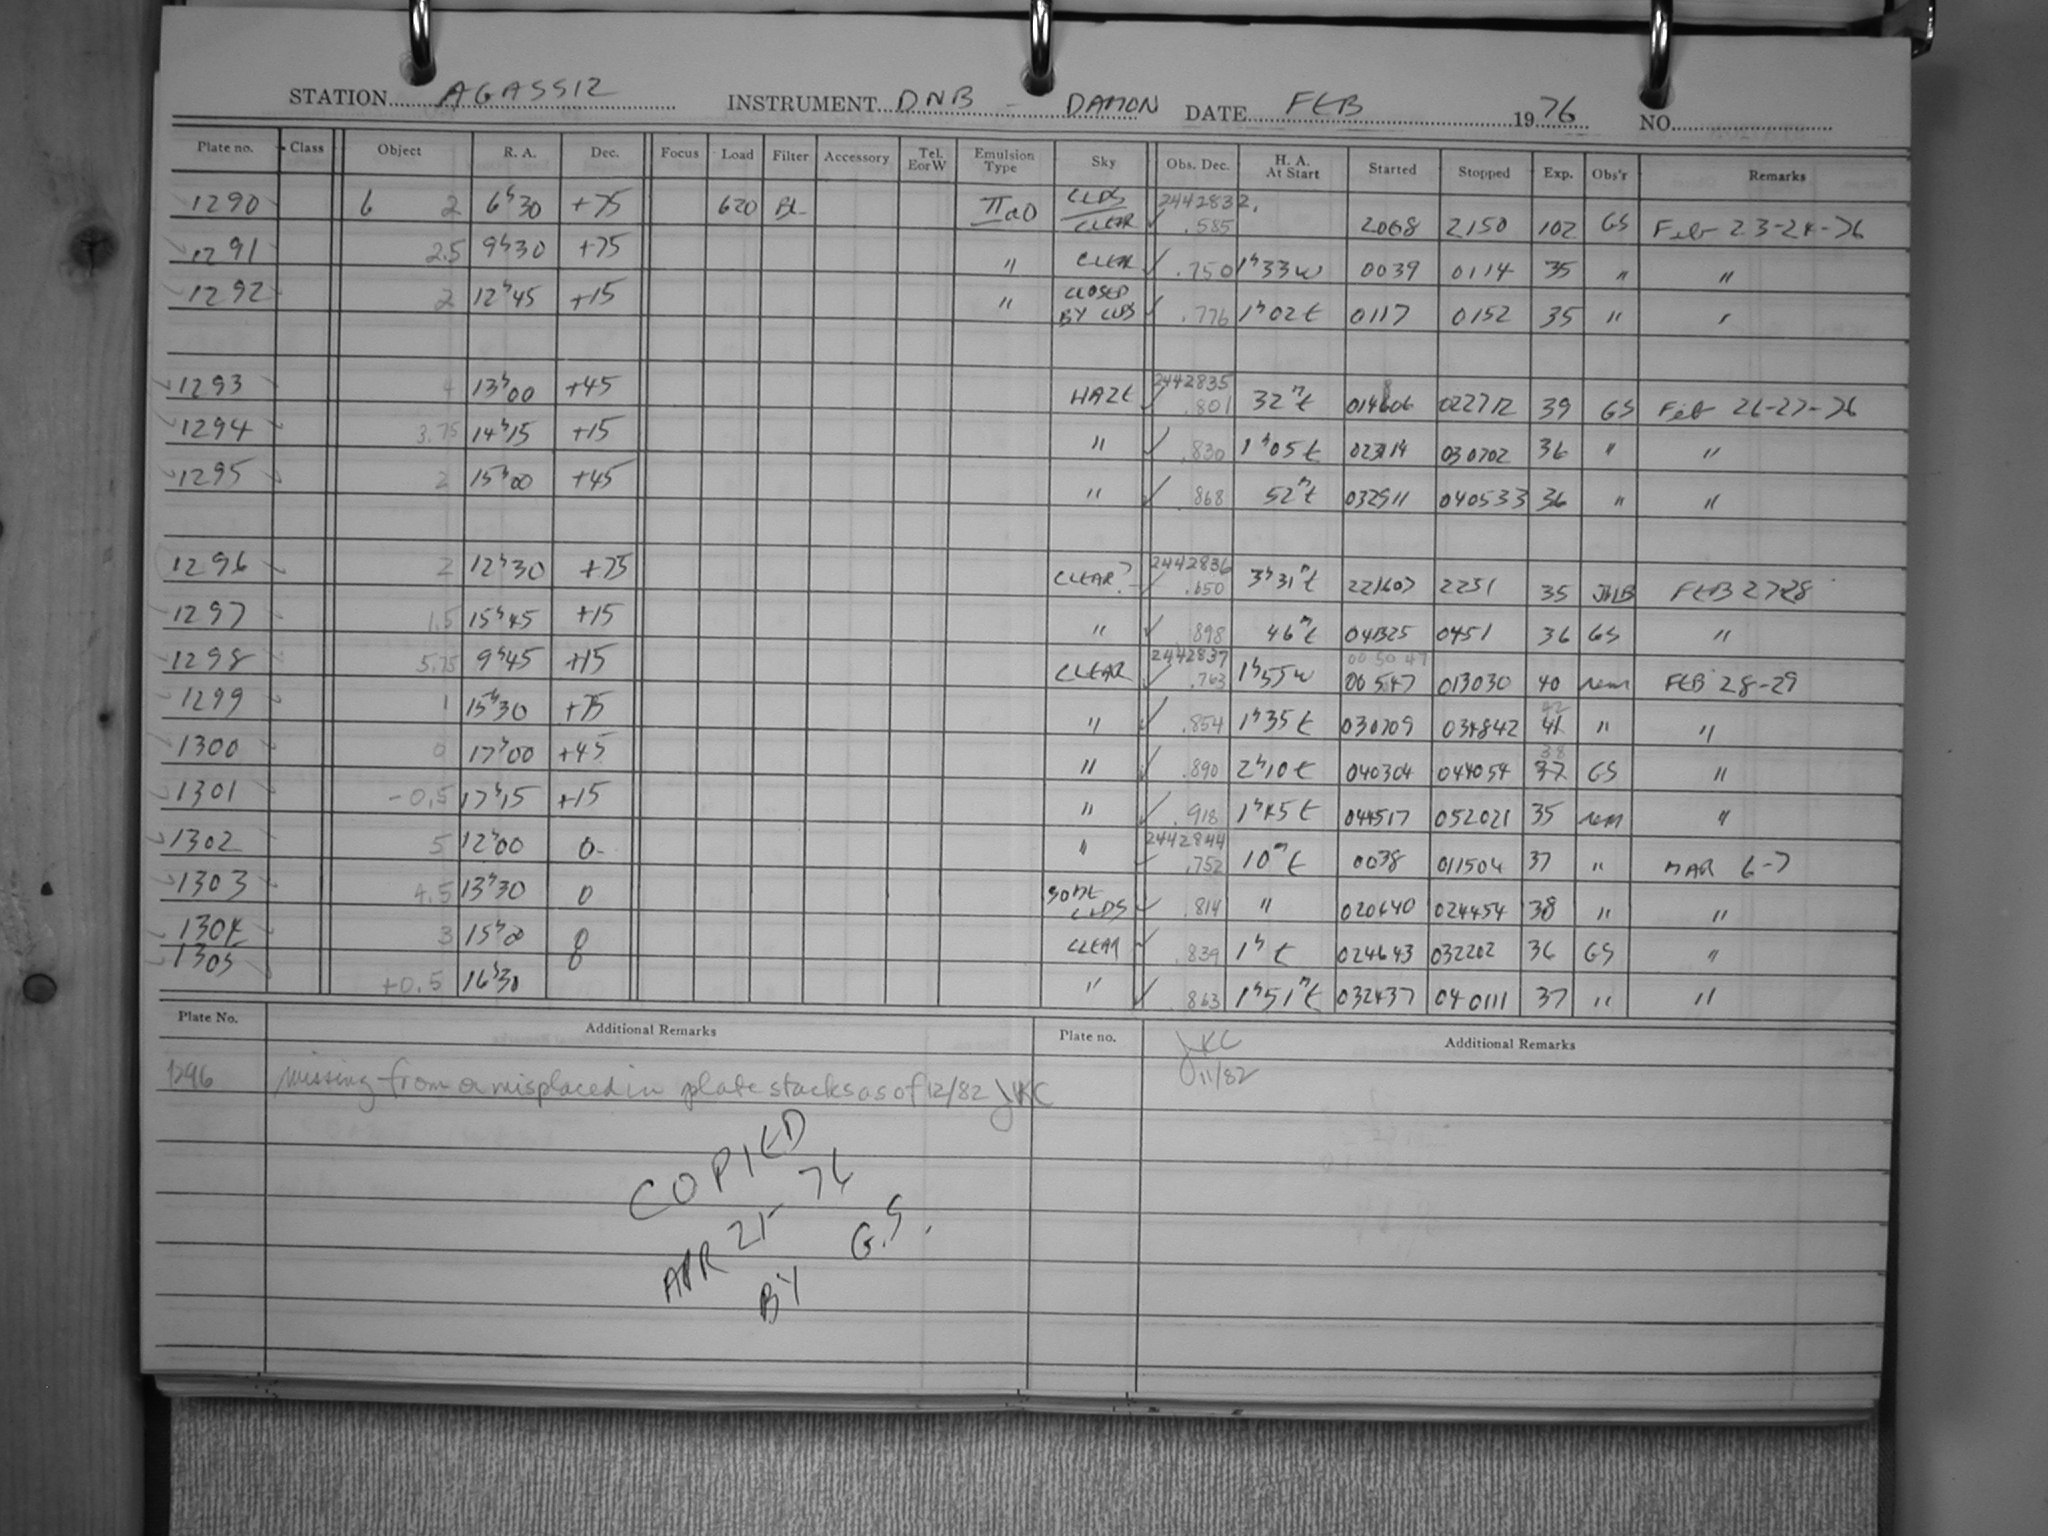 STATION AGASSIZ INSTRUMENT DNB - DAMON DATE FEB 1976 NO.
Plate no. Class Object R. A. Dec. Focus Load Filter Accessory Tel. E or W Emulsion Type Sky Obs. Dec. H. A. At Start Started Stopped Exp. Obs'r Remarks
1290 6 2 6h30 +75 620 BL IIaO CLDS CLEAR 2442832. .585 2068 2150 102 GS Feb 23-24-76
1291 2.5 9h30 +75 " CLEAR .750 1h33w 0039 0114 35 " "
1292 2 12h45 +15 " CLOSED BY CLDS .776 1h02E 0117 0152 35 " "
1293 4 13h00 +45 HAZE 2442835 .801 32mE 022712 39 GS Feb 26-27-76
1294 3.75 14h15 +15 " .830 1h05E 030702 36 " "
1295 2 15h00 +45 " .868 52mE 032911 040533 36 " "
1296 2 12h30 +75 CLEAR? 2442836 .650 3h31mE 221607 2251 35 FEB 27-28
1297 1.5 15h45 +15 " .898 46mE 041325 0451 36 GS "
1298 5.75 9h45 +15 CLEAR 2442837 .763 1h55w 00 50 47 013030 40 FEB 28-29
1299 1 15h30 +75 " .854 1h35E 030709 034842 42 41 " "
1300 0 17h00 +45 " .890 2h10E 040304 044054 38 37 GS "
1301 -0.5 17h15 +15 " .918 1h45E 044517 052021 35 "
1302 5 12h00 0 " 2442844 .752 10mE 0038 011504 37 " MAR 6-7
1303 4.5 13h30 0 SOME CLDS .814 " 020640 024454 38 " "
1304 3 15h00 0 CLEAR .839 1hE 024643 032202 36 GS "
1305 +0.5 16h30 0 " .863 1h51mE 032437 040111 37 " "
Plate No. Additional Remarks Plate no. Additional Remarks
JKC
11/82
1296 missing from or misplaced in plate stacks as of 12/82 JKC
COPIED
APR 25 76
BY G.S.